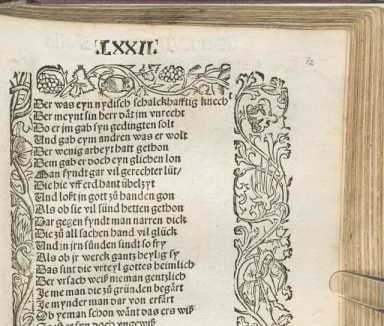 LXXII.
72
Der was eyn nydisch schalckhafftig knecht
Der meynt sin herr dåt jm vnrecht
Do er jm gab syn gedingten solt
Und gab eym andren was er wolt
Der wenig arbeyt hatt gethon
Dem gab er doch eyn glichen lon
Man fyndt gar vil gerechter lüt/
Die hie vff erd hant übelzyt
Und loßt jn gott zů handen gon
Als ob sie vil sünd hetten gethon
Dar gegen fyndt man narren dick
Die zů all sachen hand vil glück
Und jn jrn sünden sindt so fry
Als ob jr werck gantz heylig sy
Das sint die vrteyl gottes heimlich
Der vrsach weiß nieman gentzlich
Ye me man die zů gründen begårt
Ye mynder man dar von erfårt
Ob yeman schon wånt das ers wiß